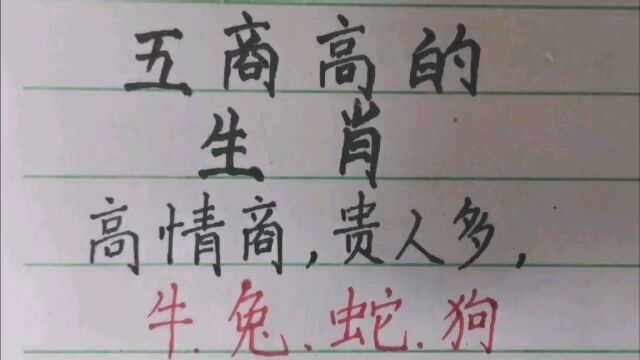 五商高的
生肖
高情商,贵人多,
牛.兔.蛇.狗